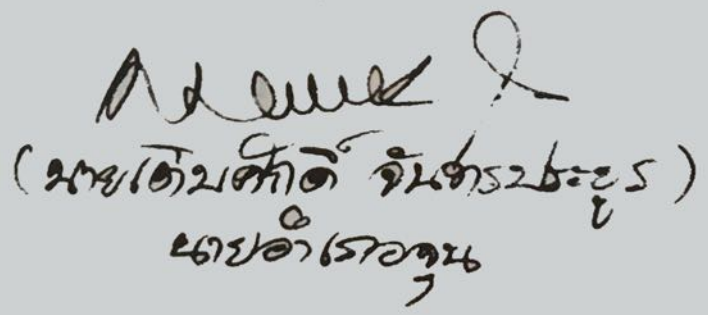 (นายเติมศักดิ์ จันทรประยูร)
นายอำเภอจุน